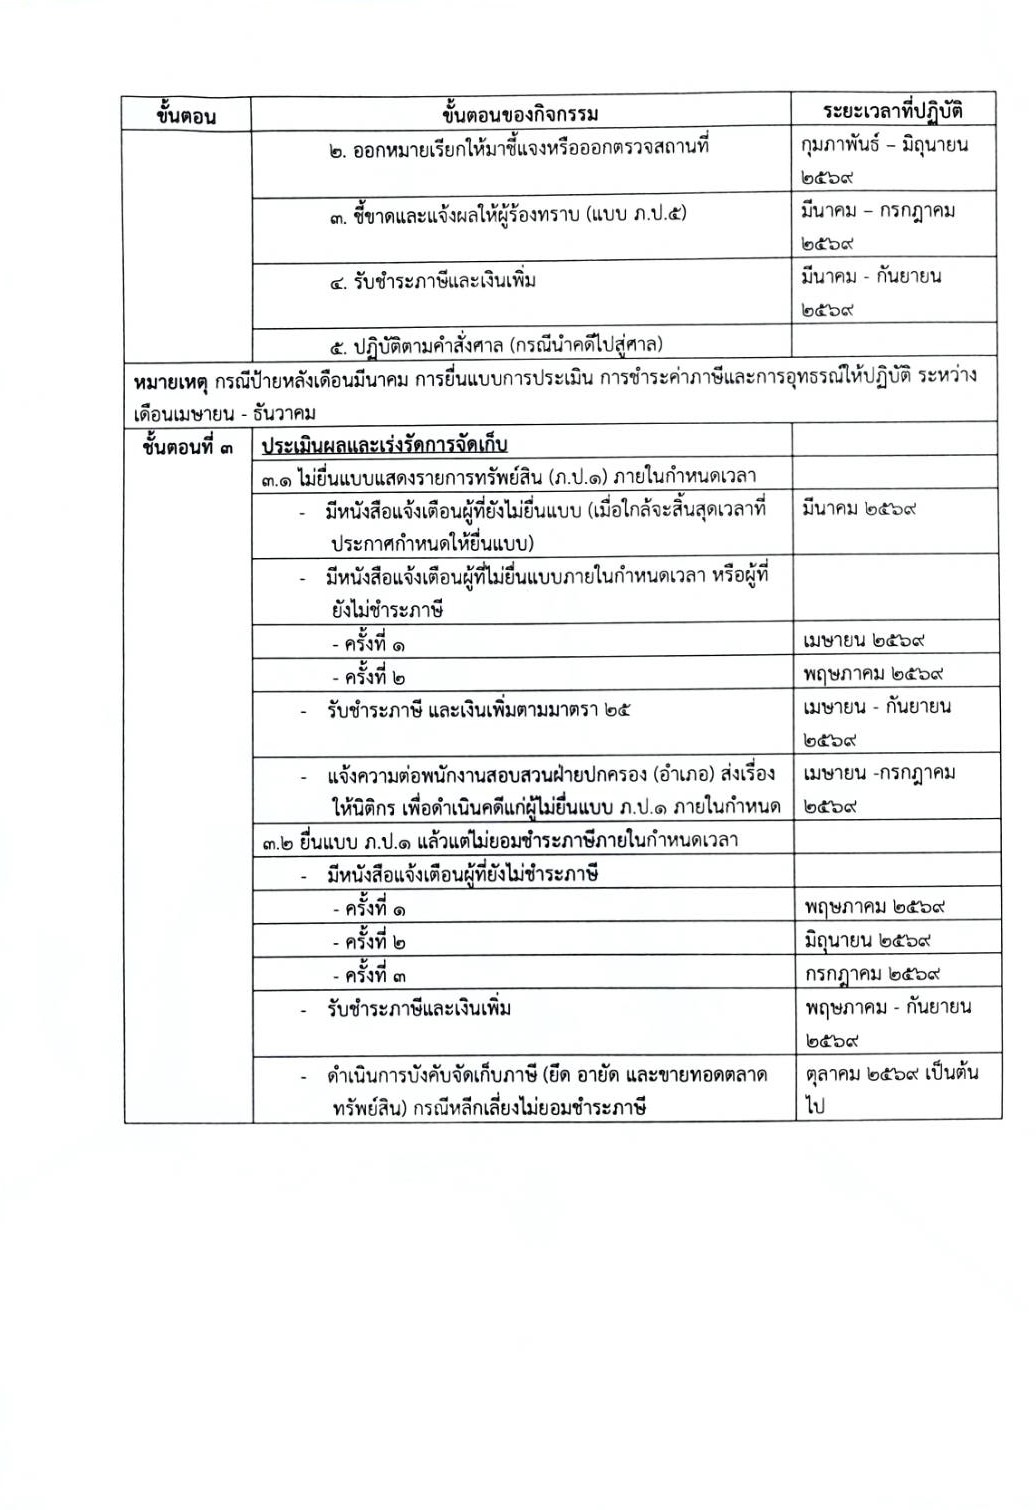 ขั้นตอน ขั้นตอนของกิจกรรม ระยะเวลาที่ปฏิบัติ
๒. ออกหมายเรียกให้มาชี้แจงหรือออกตรวจสถานที่ กุมภาพันธ์ – มิถุนายน
๒๕๖๙
๓. ชี้ขาดและแจ้งผลให้ผู้ร้องทราบ (แบบ ภ.ป.๕) มีนาคม – กรกฎาคม
๒๕๖๙
๔. รับชำระภาษีและเงินเพิ่ม มีนาคม - กันยายน
๒๕๖๙
๕. ปฏิบัติตามคำสั่งศาล (กรณีนำคดีไปสู่ศาล)
หมายเหตุ กรณีป้ายหลังเดือนมีนาคม การยื่นแบบการประเมิน การชำระค่าภาษีและการอุทธรณ์ให้ปฏิบัติ ระหว่าง
เดือนเมษายน - ธันวาคม
ชั้นตอนที่ ๓ ประเมินผลและเร่งรัดการจัดเก็บ
๓.๑ ไม่ยื่นแบบแสดงรายการทรัพย์สิน (ภ.ป.๑) ภายในกำหนดเวลา
- มีหนังสือแจ้งเตือนผู้ที่ยังไม่ยื่นแบบ (เมื่อใกล้จะสิ้นสุดเวลาที่ มีนาคม ๒๕๖๙
ประกาศกำหนดให้ยื่นแบบ)
- มีหนังสือแจ้งเตือนผู้ที่ไม่ยื่นแบบภายในกำหนดเวลา หรือผู้ที่
ยังไม่ชำระภาษี
- ครั้งที่ ๑ เมษายน ๒๕๖๙
- ครั้งที่ ๒ พฤษภาคม ๒๕๖๙
- รับชำระภาษี และเงินเพิ่มตามมาตรา ๒๕ เมษายน - กันยายน
๒๕๖๙
- แจ้งความต่อพนักงานสอบสวนฝ่ายปกครอง (อำเภอ) ส่งเรื่อง เมษายน -กรกฎาคม
ให้นิติกร เพื่อดำเนินคดีแก่ผู้ไม่ยื่นแบบ ภ.ป.๑ ภายในกำหนด ๒๕๖๙
๓.๒ ยื่นแบบ ภ.ป.๑ แล้วแต่ไม่ยอมชำระภาษีภายในกำหนดเวลา
- มีหนังสือแจ้งเตือนผู้ที่ยังไม่ชำระภาษี
- ครั้งที่ ๑ พฤษภาคม ๒๕๖๙
- ครั้งที่ ๒ มิถุนายน ๒๕๖๙
- ครั้งที่ ๓ กรกฎาคม ๒๕๖๙
- รับชำระภาษีและเงินเพิ่ม พฤษภาคม - กันยายน
๒๕๖๙
- ดำเนินการบังคับจัดเก็บภาษี (ยึด อายัด และขายทอดตลาด ตุลาคม ๒๕๖๙ เป็นต้น
ทรัพย์สิน) กรณีหลีกเลี่ยงไม่ยอมชำระภาษี ไป